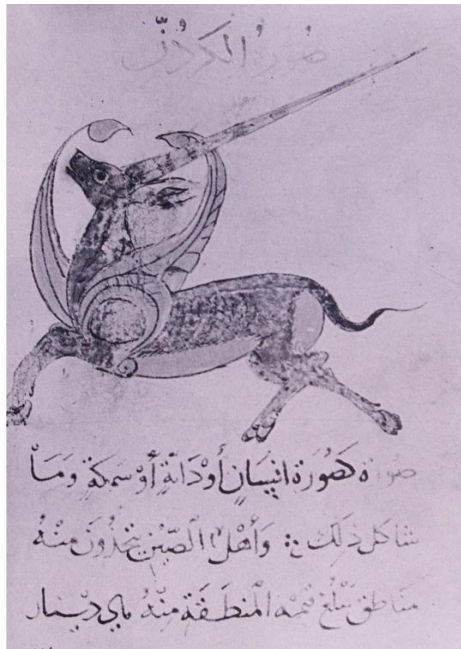 صُورةُ الكردُنّ
صورة كصُورَة انسَانٍ أوْ دَابَّةٍ أوْ سَمكةٍ وَمَا
شاكل ذَلِكَ ؞ وَأهْلُ الصِّيْنِ يتخذُونَ مِنْهُ
مناطق تبْلُغ قيمه المنطَقَة مِنْهُ ماى دِيْنار